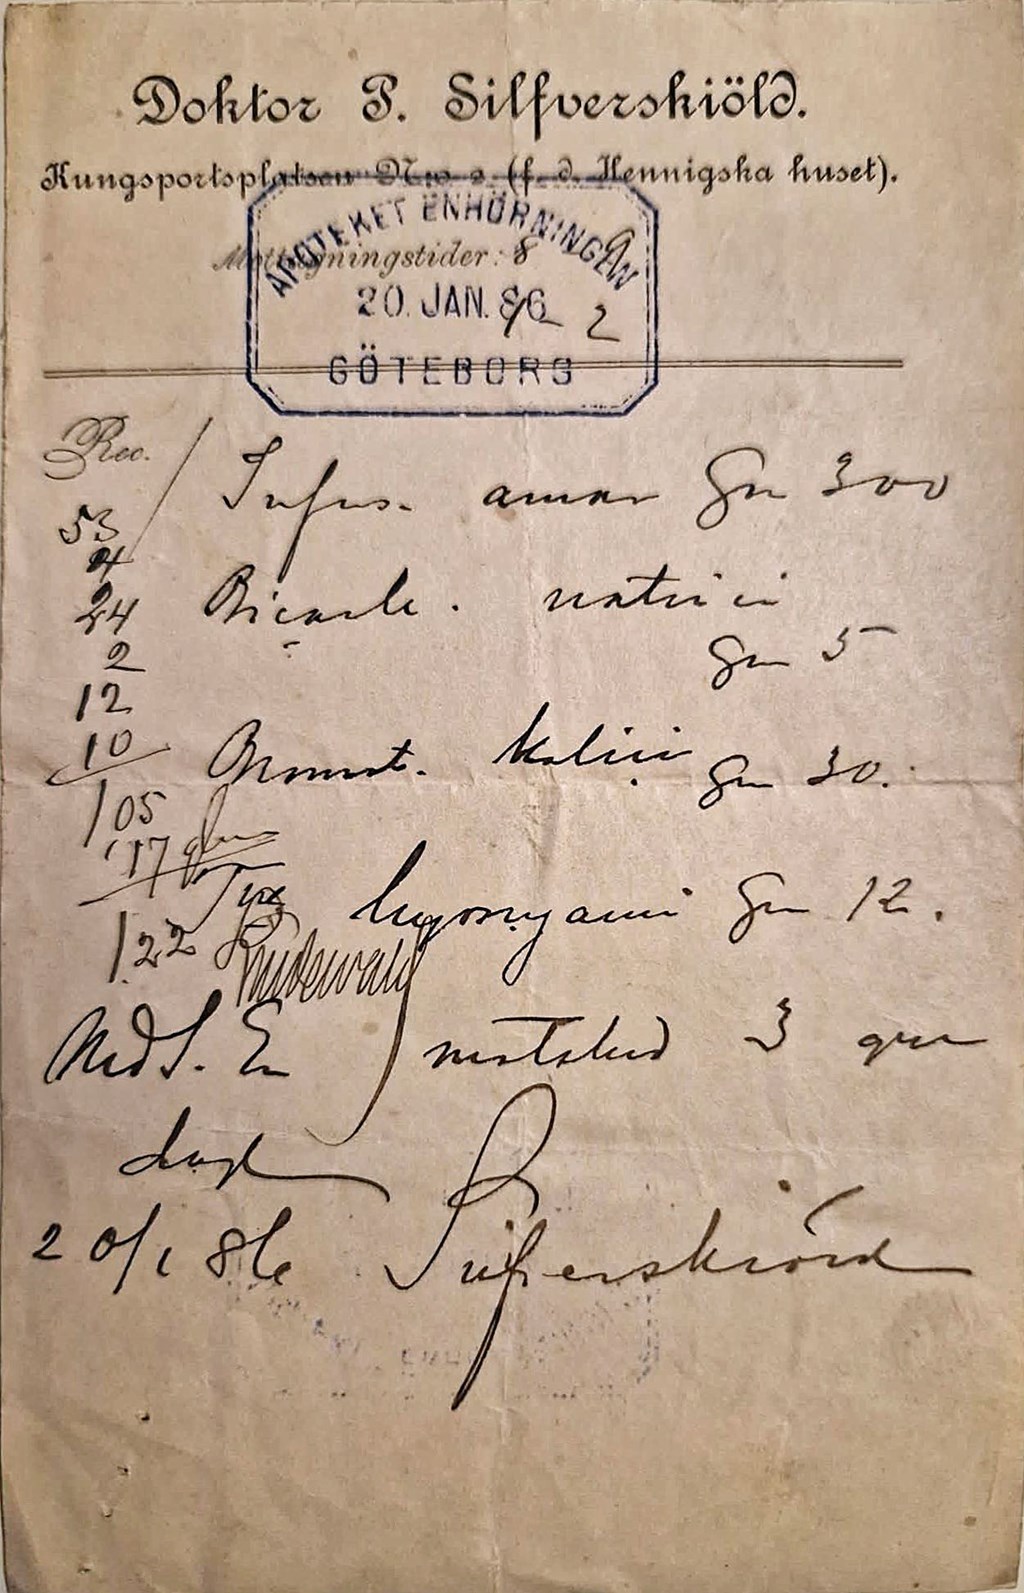 Doktor P. Silfverskiöld.
Kungsportsplatsen N:o 2 (f. d. Hennigska huset).
APOTEKET ENHÖRNINGEN
Mottagningstider: 8 9
20. JAN. 86
2
GÖTEBORG
Rec.
Infus. amar Gm 300
53
4
24
Bicarb. natrici
2
Gm 5
12
10
Bromet. kalici Gm 30.
105
17
Tinct hyoscyami Gm 12.
122
Lindewald
MdS. En matsked 3 ggr
dagl
20/1 86 Silfverskiöld